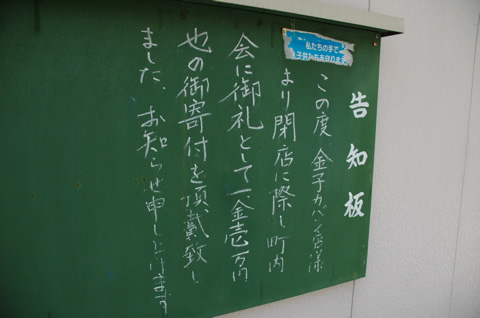 告知板
私たちの手で
子供たちを守りましょう
この度、金子カバン店様
より閉店に際し町内
会に御礼として一金壱万円
也の御寄付を頂戴致し
ました。お知らせ申し上げます